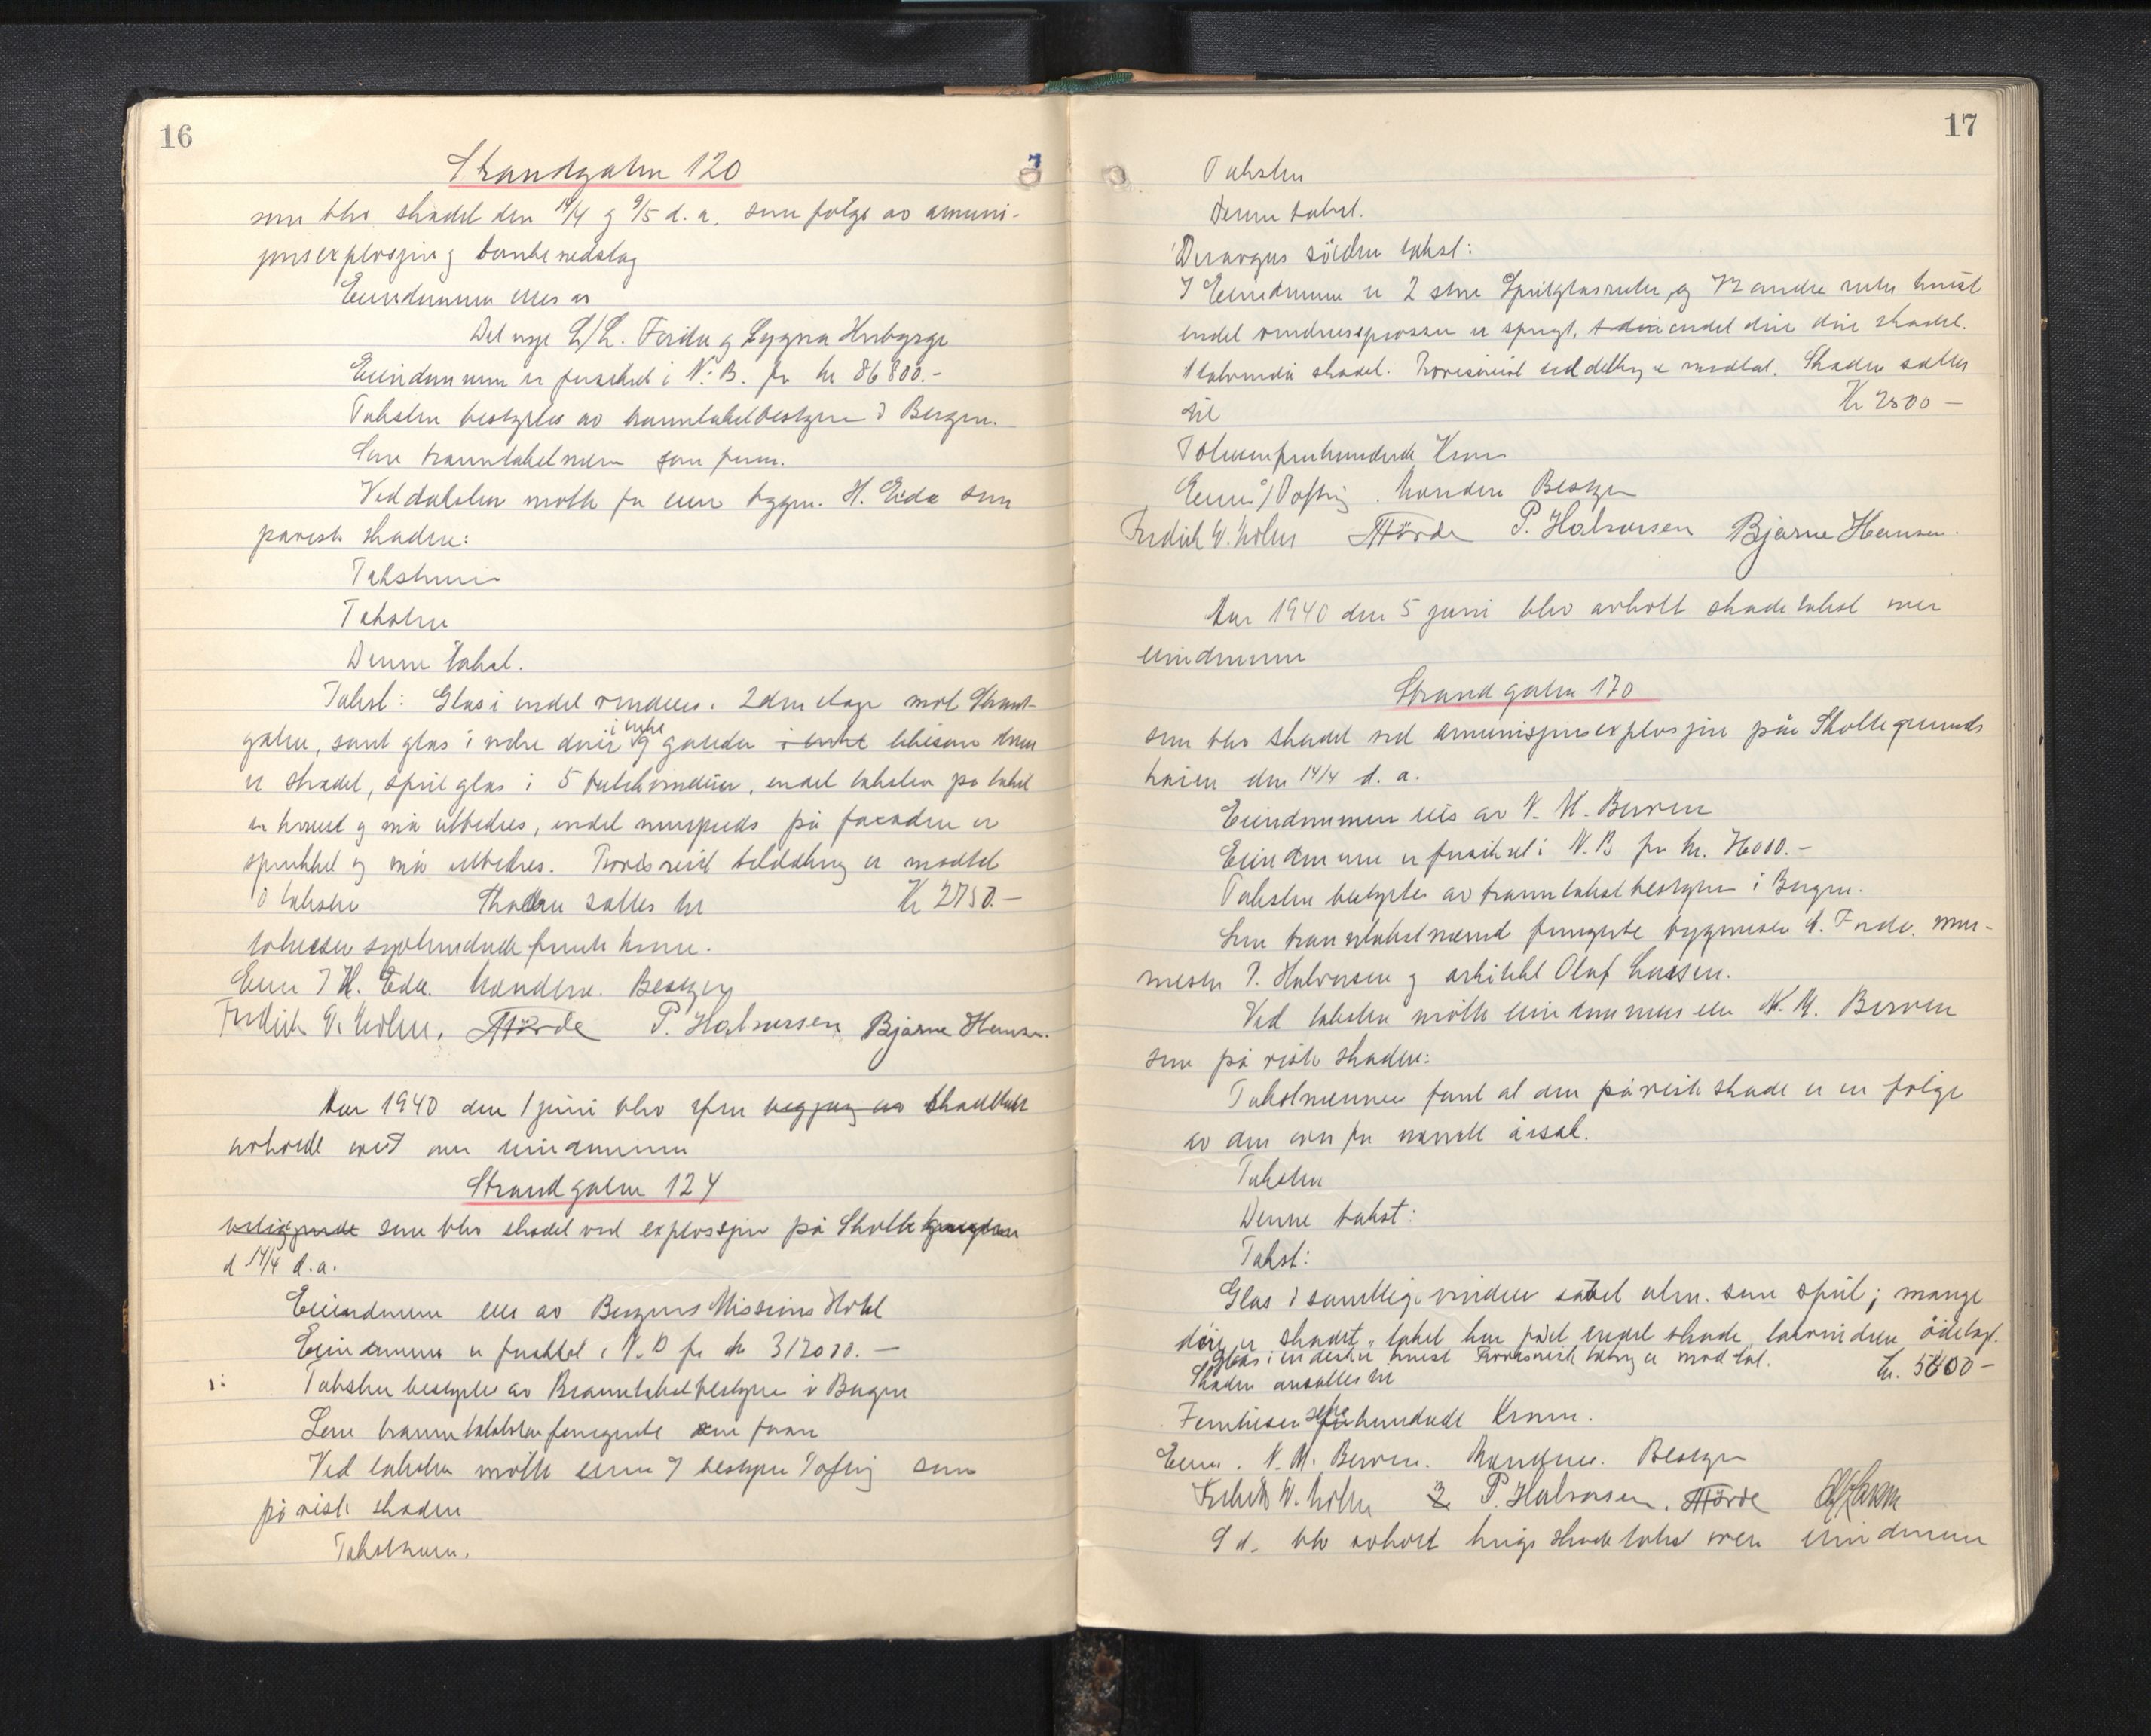 16
Strandgaten 120
som blev skadet den 14/4 og 9/5 d.a. som følge av amuni-
sjonsexplosjon og bombenedslag
Eiendommen eies av
Det nye L/L. Fjordu og Lygra
Eiendommen er forsikret i N.B. for kr 86800.-
Taksten bestyrtes av branntakstbestyrer i Bergen.
Som branntakstmenn som foran.
Ved taksten møtte for eier byggm. H. Eide som
påviste skaden:
Taksten
Denne takst.
Takst: Glas i endel vinduer i 2dre etage mot Strand-
gaten, samt glas i indre dører og
er skadet, speilglas i 5 butikvinduer, endel taksten på taket
er knust og må utbedres, endel murpuds på facaden er
sprukket og må utbedres. Provisorisk tildekking er medtat
i taksten Skaden settes til Kr 2750.-
totusen syvhundrede femti kroner.
Eier H. Eide. Mændene. Bestyrer
Fredrik W. Holm. Førde P. Halvorsen Bjarne Hansen.
Aar 1940 den 1 juni blev efter begjæring av skadetakst
avholdt over eiendommen
Strandgaten 124
beliggende som blev skadet ved explosjon på Skolte
d 14/4 d.a.
Eiendommen eies av Bergens Missions Hotel
Eiendommen er forsikret i N.B. for kr 312000.-
Taksten bestyrtes av Branntakstbestyrer i Bergen
Som branntakstmenn fungerte som foran
Ved taksten møtte eieren v/ bestyrer Tofting som
påviste skaden
Takstmenn.
17
Taksten
Denne takst.
I Eiendommen er 2 store Speilglasruter og 72 andre ruter knust
endel vinduessprosser er sprengt, endel dører skadet.
Provisorisk tildekking er medtat. Skaden settes
til Kr 2500-
Totusenfemhundrede Kroner
Eier v/ Tofting. Mændene Bestyrer
Fredrik W. Holm Førde P. Halvorsen Bjarne Hansen.
Aar 1940 den 5 juni blev avholt skadetakst over
eiendommen
Strandgaten 170
som blev skadet ved amunisjonsexplosjon på Skoltegrunds
kaien den 14/4 d.a.
Eiendommen eies av N. M. Berven
Eiendommen er forsikret i N.B for kr. 76000.-
Taksten bestyrtes av branntakstbestyrer i Bergen.
Som branntakstmenn fungerte bygmester A. Førde. mur-
mester P. Halvorsen og arkitekt Olaf Larssen.
Ved taksten møtte eiendommens eier N. M. Berven
som påviste skaden:
Takstmennene fant at den påviste skade er en følge
av den oven for nævnte årsak.
Taksten
Denne takst:
Takst:
Glas i samtlige vinduer såvel alm. som speil; mange
dører er skadet, taket har fået endel skade, takvinduer ødelagt.
Glas i er knust Provisorisk tekning er medtat.
Skaden ansettes til kr. 5600-
Femtusen seks hundrede Kroner.
Eier. N. M. Berven. Mændene. Bestyrer
Fredrik W. Holm P. Halvorsen. Førde Olaf Larssen
S d. blev avholt krigsskadetakst over eiendommen